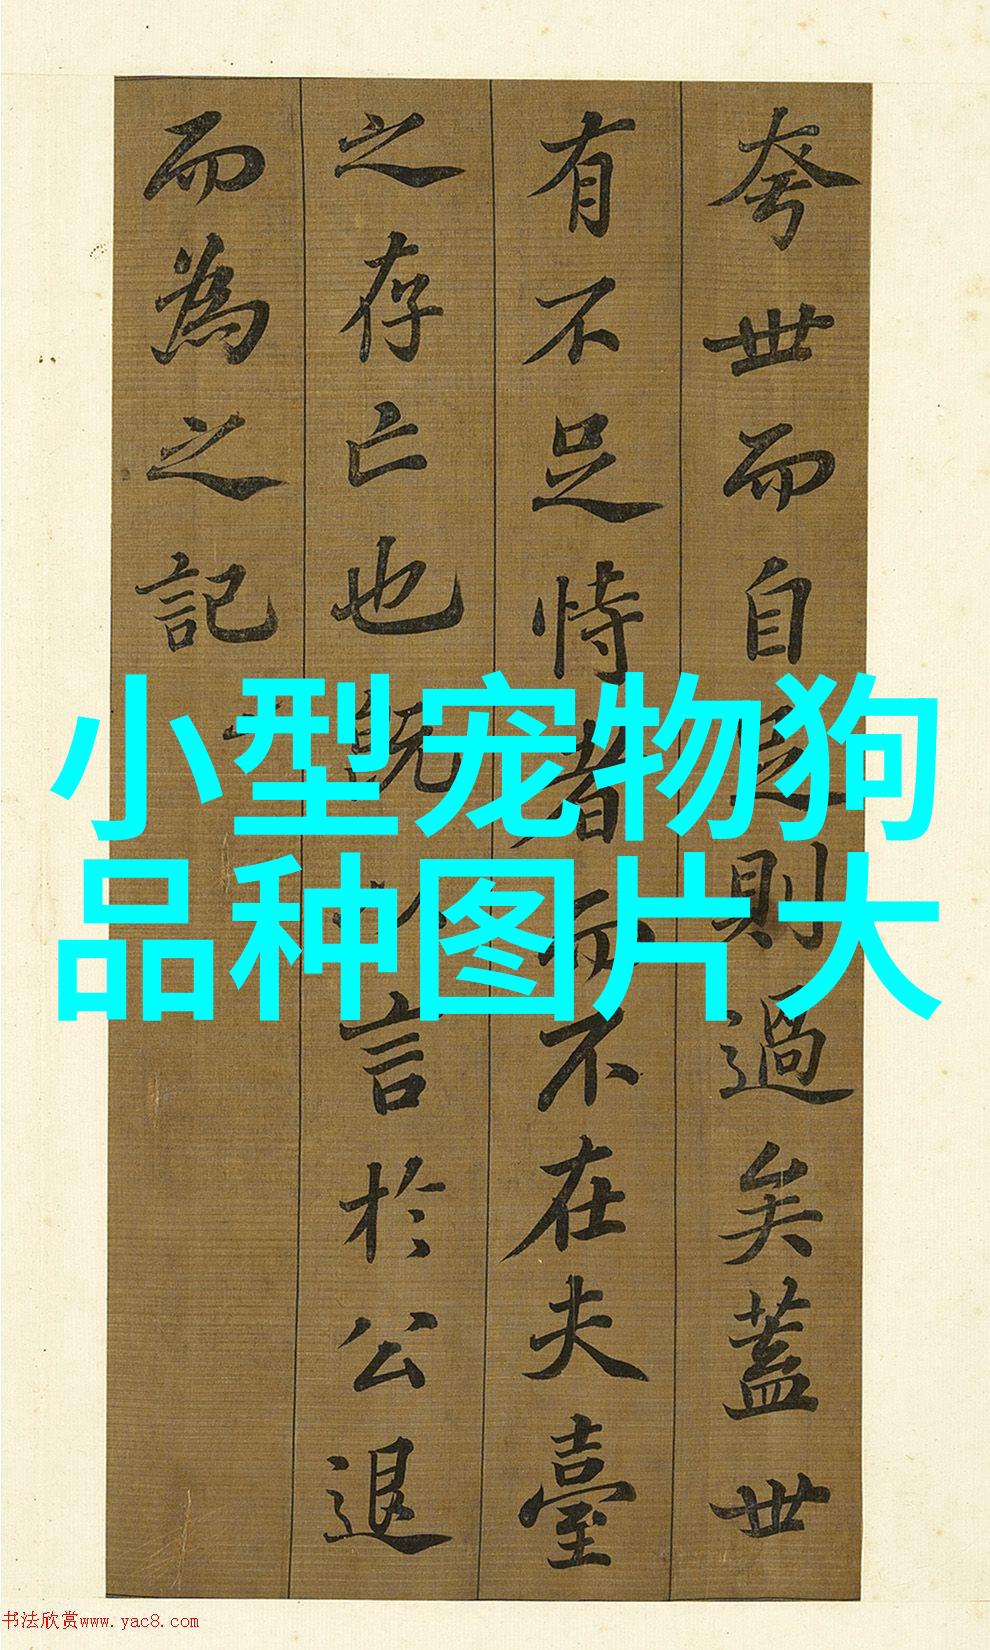 夸世而自足則過矣蓋世
有不足恃者而不在夫臺
之存亡也既以言於公退
而為之記
小型宠物狗
品种图片大
书法欣赏www.yac8.com